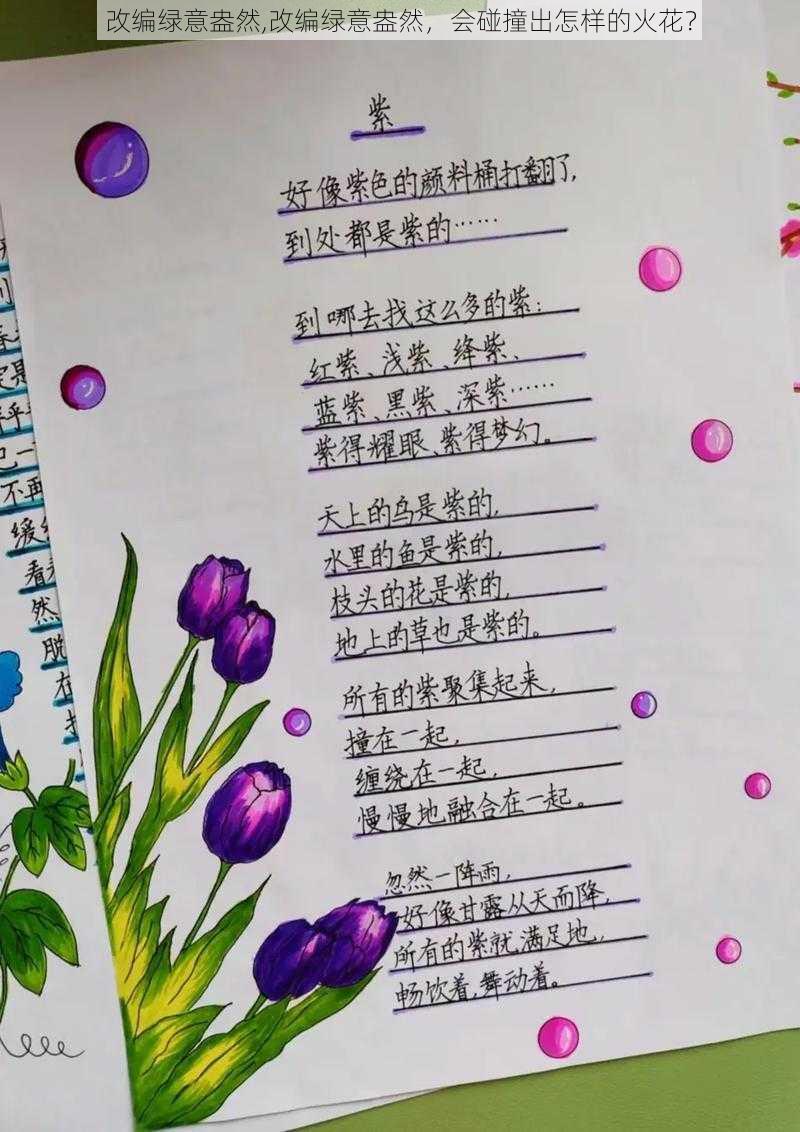 改编绿意盎然,改编绿意盎然，会碰撞出怎样的火花？
紫
好像紫色的颜料桶打翻了,
到处都是紫的……
到哪去找这么多的紫:
红紫、浅紫、绛紫、
蓝紫、黑紫、深紫……
紫得耀眼、紫得梦幻。
天上的鸟是紫的,
水里的鱼是紫的,
枝头的花是紫的,
地上的草也是紫的。
所有的紫聚集起来,
撞在一起,
缠绕在一起,
慢慢地融合在一起。
忽然一阵雨,
好像甘露从天而降,
所有的紫就满足地,
畅饮着,舞动着。
不再
缓
看
然
脱
在